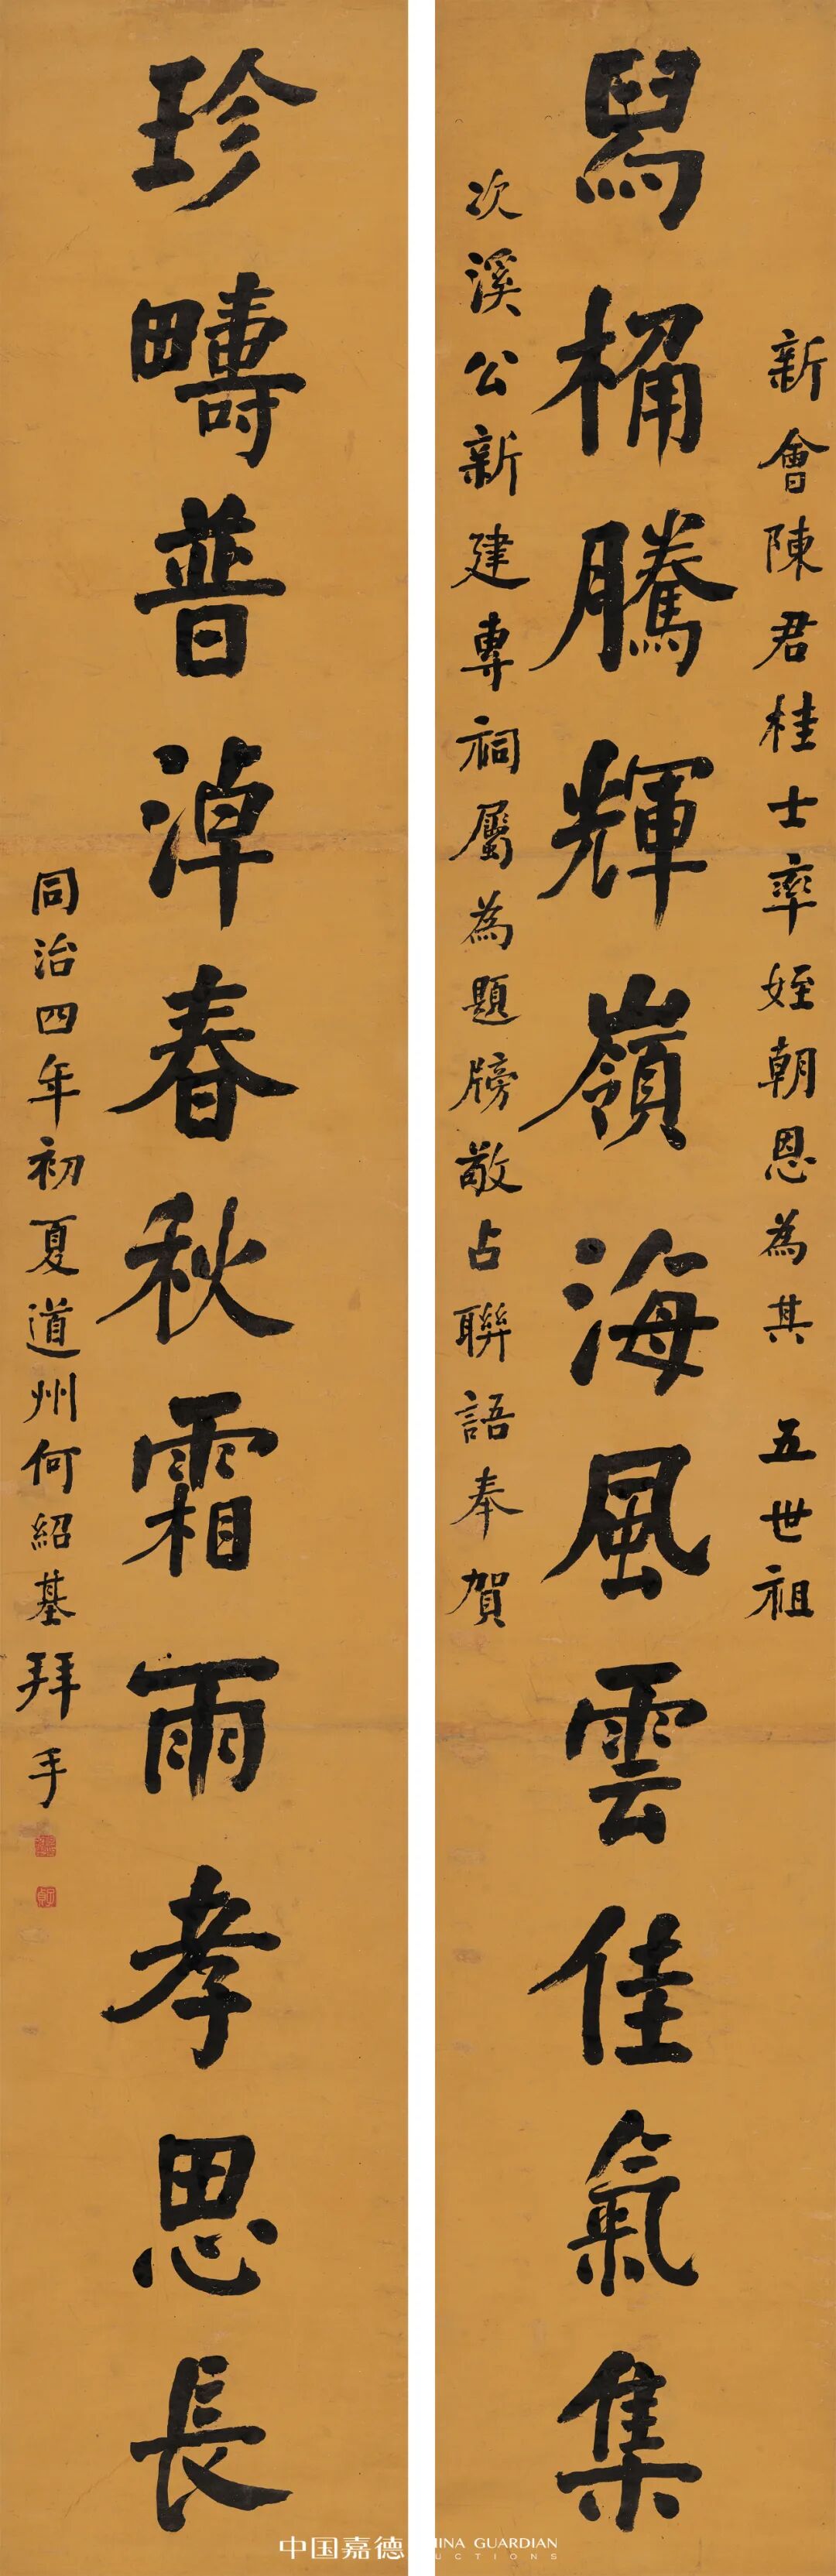 新會陳君桂士率姪朝恩為其 五世祖
舄桷騰輝嶺海風雲佳氣集
次溪公新建專祠屬為題牓敬占聯語奉賀
珍疇普淖春秋霜雨孝思長
同治四年初夏道州何紹基拜手
中国嘉德
INA GUARDIAN
UCTIONS